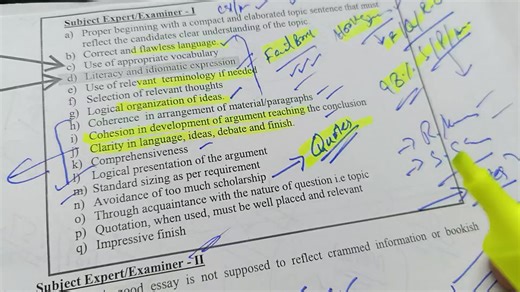 Subject Expert/Examiner - I
a) Proper beginning with a compact and elaborated topic sentence that must
reflect the candidates clear understanding of the topic.
b) Correct and flawless language.
c) Use of appropriate vocabulary
d) Literacy and idiomatic expression
e) Use of relevant terminology if needed
f) Selection of relevant thoughts
g) Logical organization of ideas.
h) Coherence in arrangement of material/paragraphs
i) Cohesion in development of argument reaching the conclusion
j) Clarity in language, ideas, debate and finish.
k) Comprehensiveness
l) Logical presentation of the argument
m) Standard sizing as per requirement
n) Avoidance of too much scholarship
o) Through acquaintance with the nature of question i.e topic
p) Quotation, when used, must be well placed and relevant
q) Impressive finish
Quotes
98%
Subject Expert/Examiner - II
good essay is not supposed to reflect crammed information or bookish